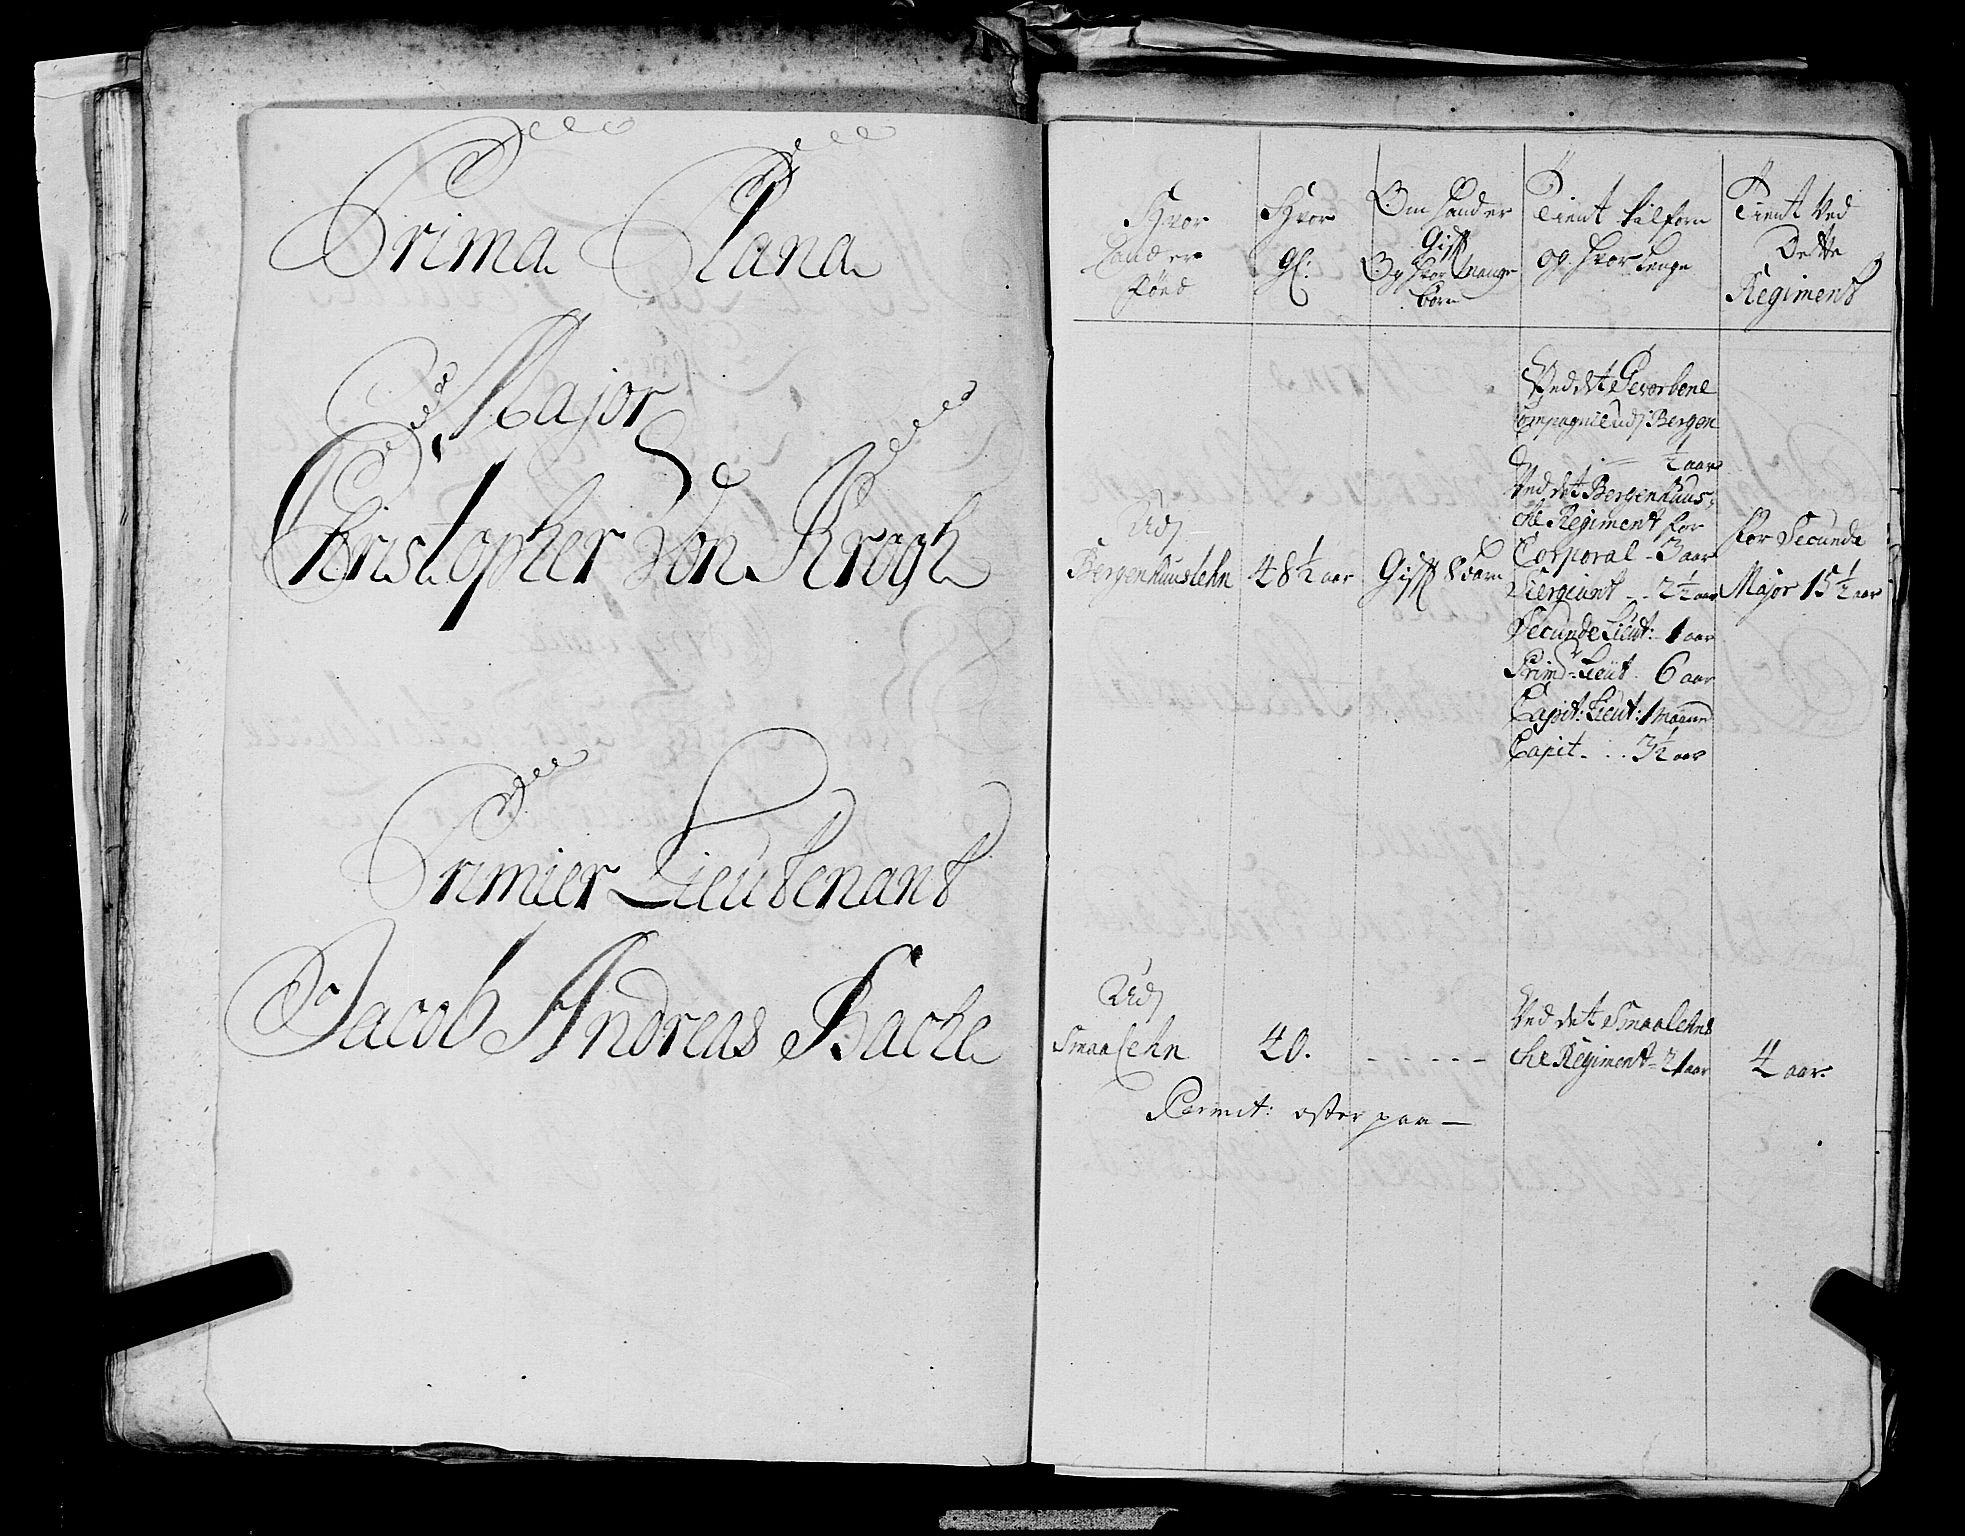 Prima Plana
Major
Christopher Von Krogh
Primier Lieutenant
Jacob Andreas Bache
Hvor
hand er
Föed
Hvor
gl:
Om hand er
Gift
Og hvor mange
börn
Tient tilforn
og hvor lenge
Tient Ved
Dette
Regiment
Udj
Bergenhuuslehn
48 1/2 aar
Gift 8 barn
Ved det Gevorbene
Compagnie udj Bergen
1/2 aar
Ved det Bergenhuus-
che Regiment for
Corporal - 3 aar
Siergiant - - 2 1/2 aar
Secunde Lieut: 1 aar
Primr Lieut - 6 aar
Capit: Lieut: 1 maaned
Capit - . . . 3 1/2 aar
for Secunde
Major 15 1/2 aar
Udj
Smaalehn
40.
- - - - - -
Ved det Smaalehns
che Regiment - 21 aar
4 aar.
Permit: efter paa —